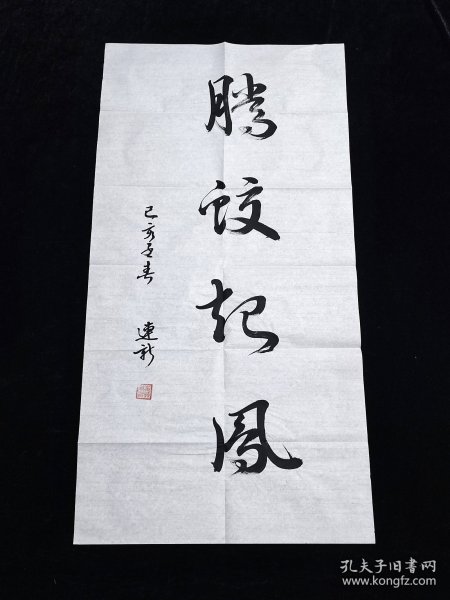 腾蛟起凤
己亥孟春 连新
孔夫子旧书网
www.kongfz.com